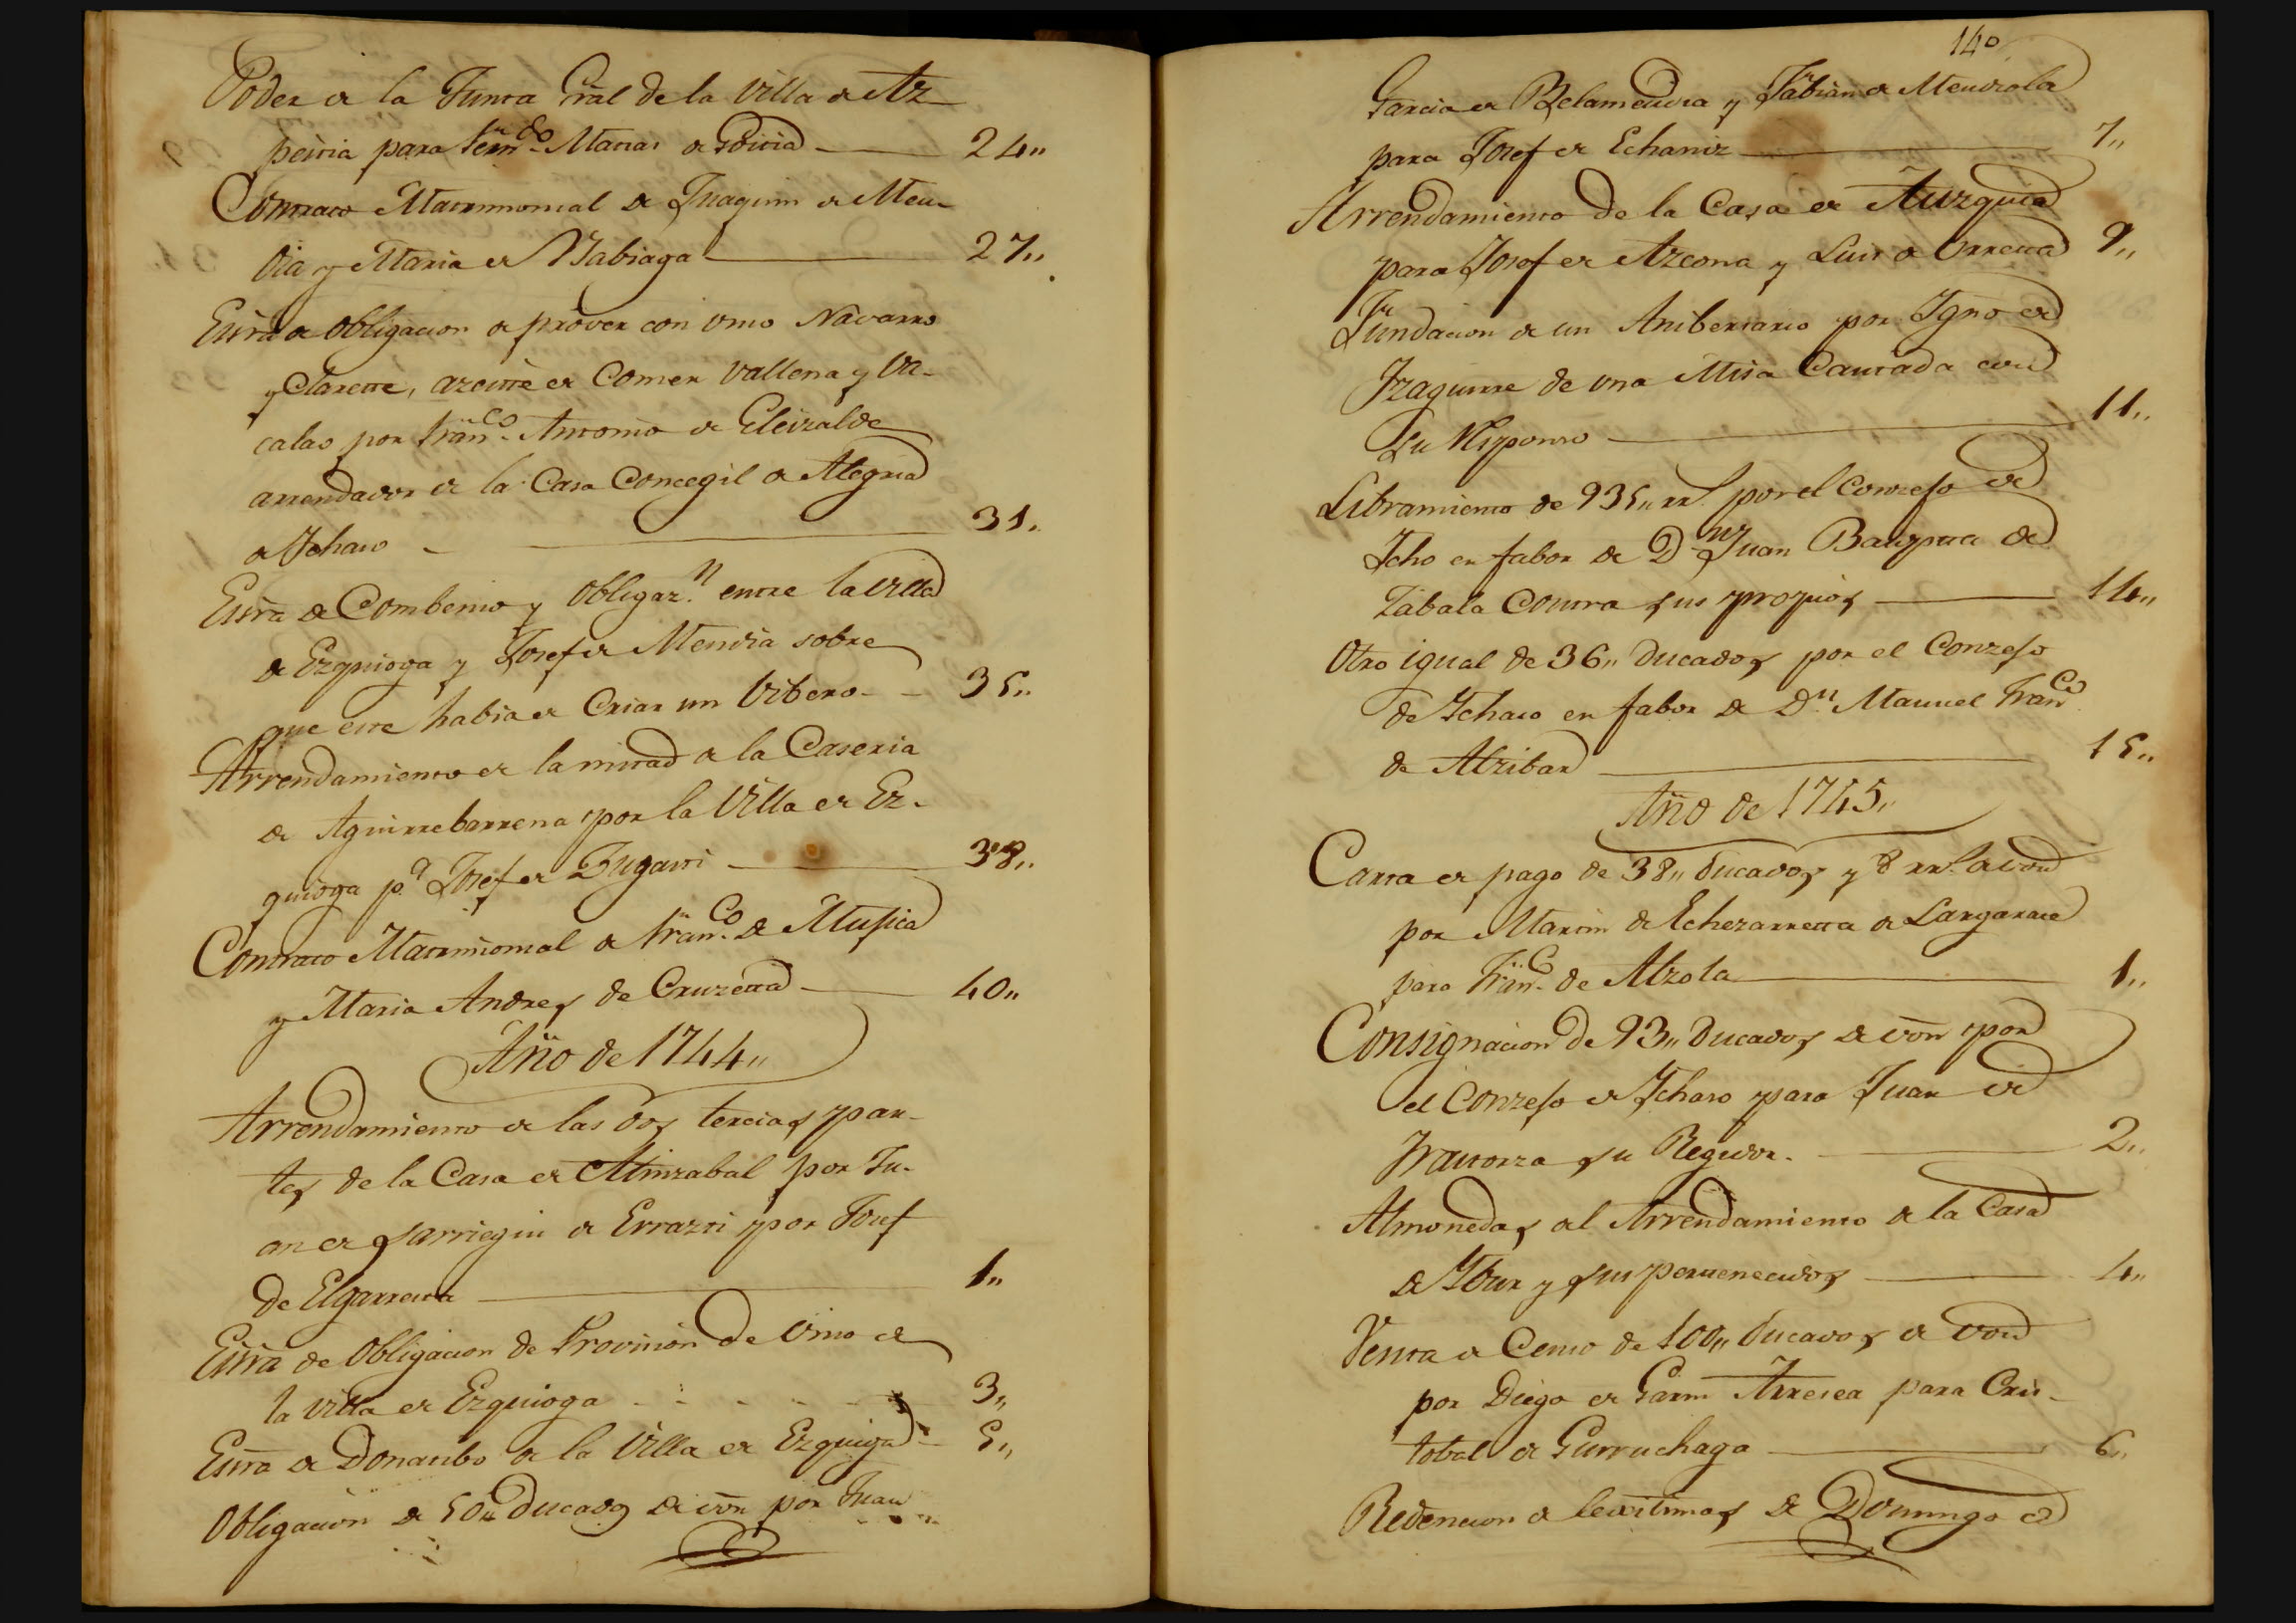 Poder de la Junta Gral de la Villa de Az-
peitia para Fern.do Matias de Goitia 24,,
Contrato Matrimonial de Juaquin de Men-
dia y Maria de Zabiaga 27,,
Escra de obligacion de prover con vino Navarro
y Clarete, azeite de Comer vallena y Va-
calao por Fran.co Antonio de Eleizalde
arrendador de la Casa Concegil de Alegria
de Ichaso 31,,
Escra de Combenio y obligaz.n entre la villa
de Ezquioga y Josef de Mendia sobre
que este habia de Criar un Vibero 35,,
Arrendamiento de la mitad de la Caseria
de Aguirrebarrena por la Villa de Ez-
quioga p.a Josef de Zugasti 38,,
Contrato Matrimonial de Fran.co de Mujica
y Maria Andres de Cruzeta 40,,
Año de 1744,,
Arrendamiento de las dos tercias par-
tes de la Casa de Alinzabal por Ju-
an de Sarriegui de Errazti por Josef
de Elgarresta 1,,
Escra de Obligacion de Provision de Vino de
la villa de Ezquioga 3,,
Escra de Donatibo de la Villa de Ezquioga 5,,
Obligacion de 50,, Ducados de von por Juan
140
Garcia de Belamendia y Fabian de Mendiola
para Josef de Echaniz 7,,
Arrendamiento de la Casa de Auzquia
para Josef de Azcona y Luis de Orreta 9,,
Fundacion de un Anibersario por Igno de
Izaguirre de una Misa Cantada con
Su Responso 11,,
Libramiento de 935,, rr.s por el Conzejo de
Icho en fabor de D.n Juan Bauptta de
Zabala Contra sus propios 14,,
Otro igual de 36,, Ducados por el Conzejo
de Ichaso en fabor de D.n Manuel Fran.co
de Alzibar 15,,
Año de 1745,,
Carta de pago de 38,, ducados y 8 rr.s de von
por Martin de Echezarreta de Langarare
para Fran.co de Alzola 1,,
Consignacion de 93,, Ducados de von por
el Conzejo de Ichaso para Juan de
Iraitorza su Regidor. 2,,
Almonedas al Arrendamiento de la Casa
de Ibur y sus pertenecidos 4,,
Venta a Censo de 100,, ducados de von
por Diego de Garin Arresea para Cris-
tobal de Gurruchaga 6,,
Redencion de lexitimas de Domingo de